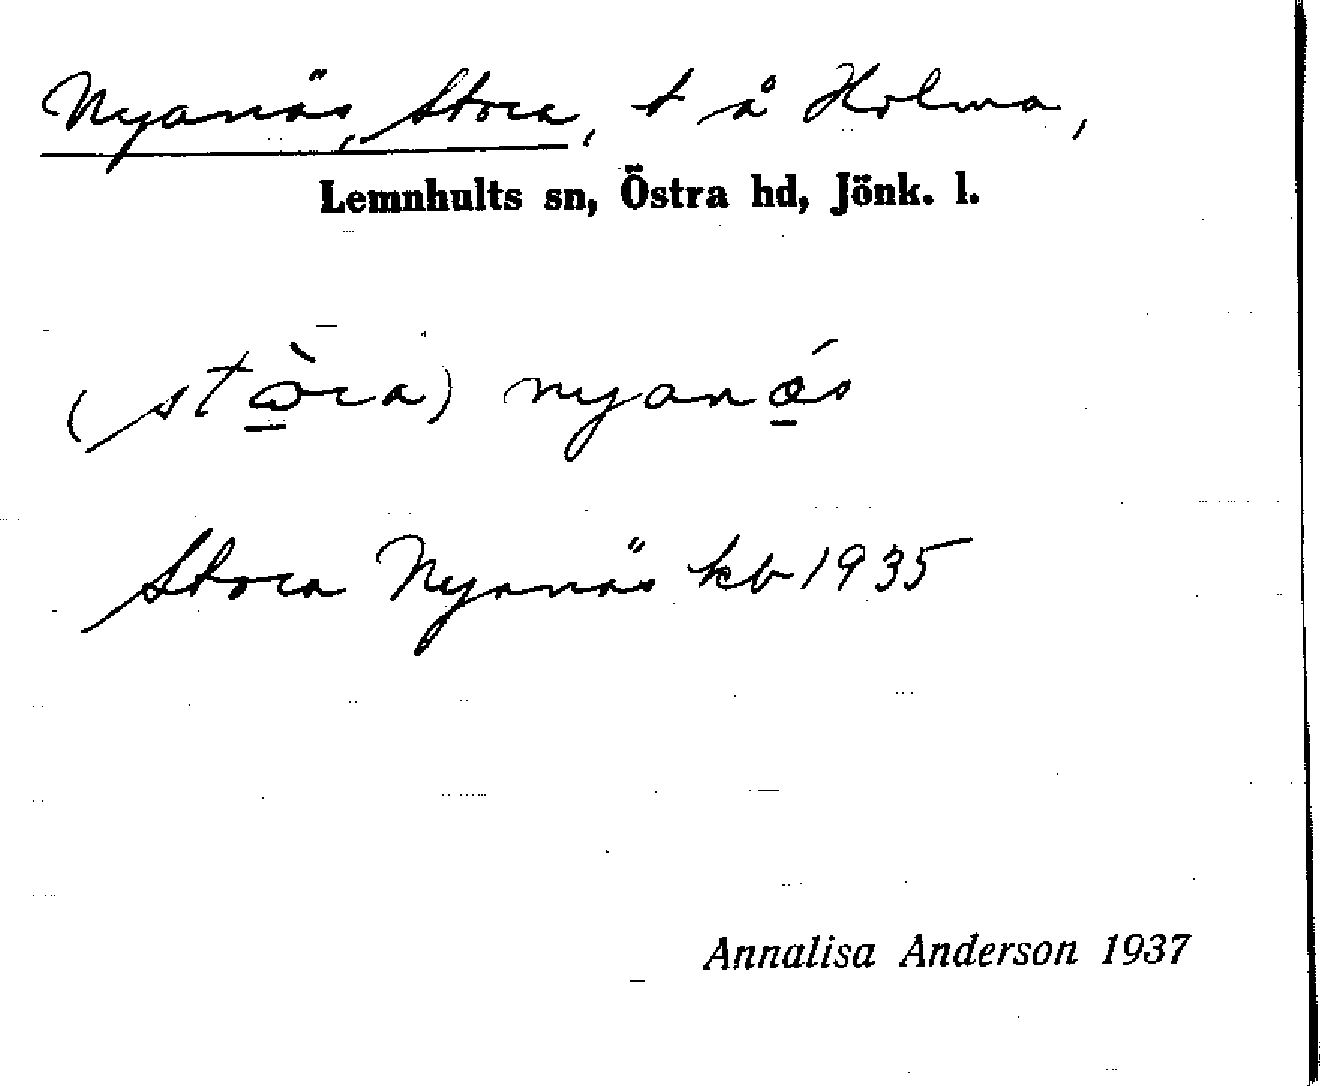 Nyanäs, Stora, t å Holma,
Lemnhults sn, Östra hd, Jönk. l.
(stὼ̲ra) nyanǽ̲s
Stora Nyanäs kb 1935
Annalisa Anderson 1937